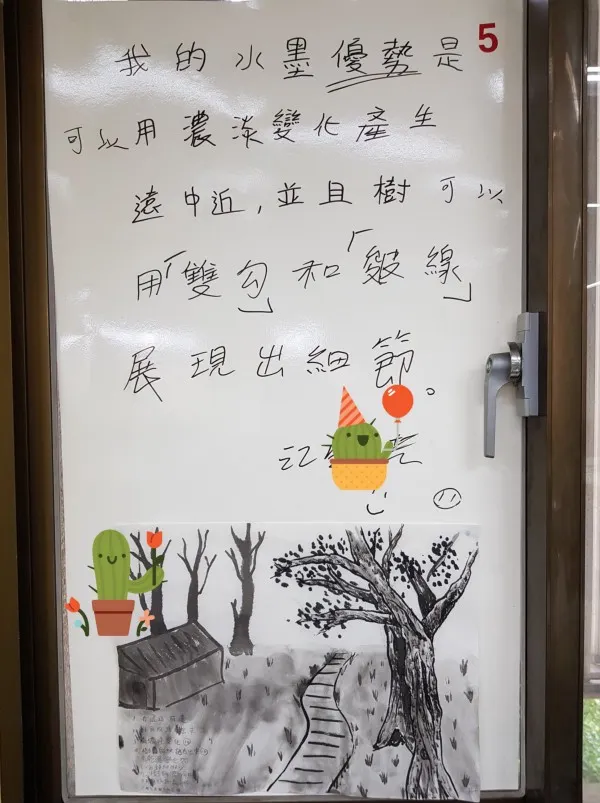 5
我的水墨優勢是
可以用濃淡變化產生
遠中近,並且樹可以
用「雙勾」和「皴線」
展現出細節。
江